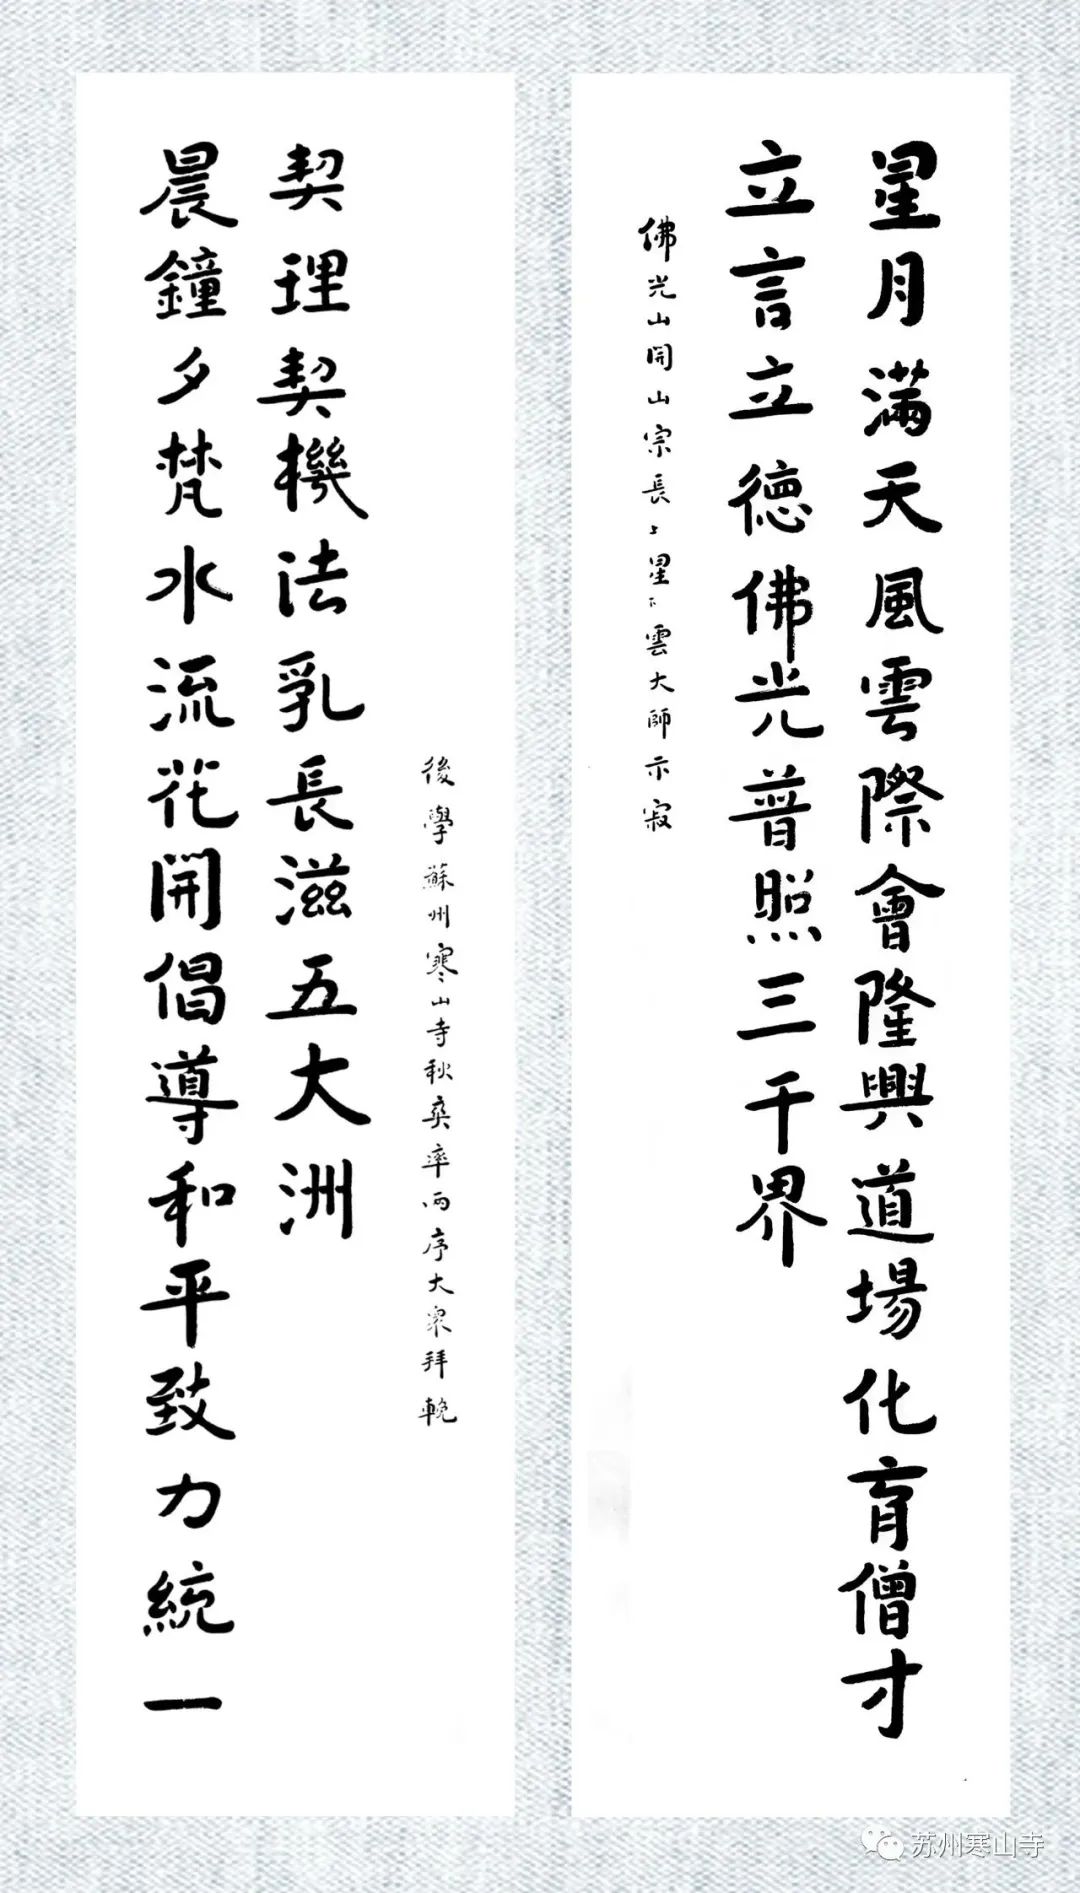 星月滿天風雲際會隆興道場化育僧才
立言立德佛光普照三千界
佛光山開山宗長上星下雲大師示寂
晨鐘夕梵水流花開倡導和平致力統一
契理契機法乳長滋五大洲
後學蘇州寒山寺秋爽率兩序大眾拜輓
苏州寒山寺